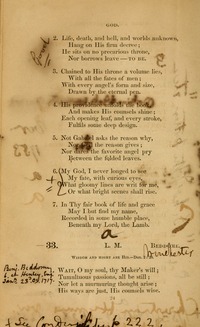 GOD.
2. Life, death, and hell, and worlds unknown,
Hang on His firm decree;
He sits on no precarious throne,
Nor borrows leave — TO BE.
3. Chained to His throne a volume lies,
With all the fates of men;
With every angel's form and size,
Drawn by the eternal pen.
4. His
And makes His counsels shine;
Each opening leaf, and every stroke,
Fulfils some deep design.
5. Not Gabriel asks the reason why,
Nor the reason gives;
Nor dares the favorite angel pry
Between the folded leaves.
6. My God, I never longed to see
My fate, with curious eyes,
What gloomy lines are writ for me,
Or what bright scenes shall rise.
7. In Thy fair book of life and grace
May I but find my name,
Recorded in some humble place,
Beneath my Lord, the Lamb.
33. L. M. BEDDOME.
WAIT, O my soul, thy Maker's will;
Tumultuous passions, all be still;
Nor let a murmuring thought arise;
His ways are just, His counsels wise.
Benj. Beddome
See
222